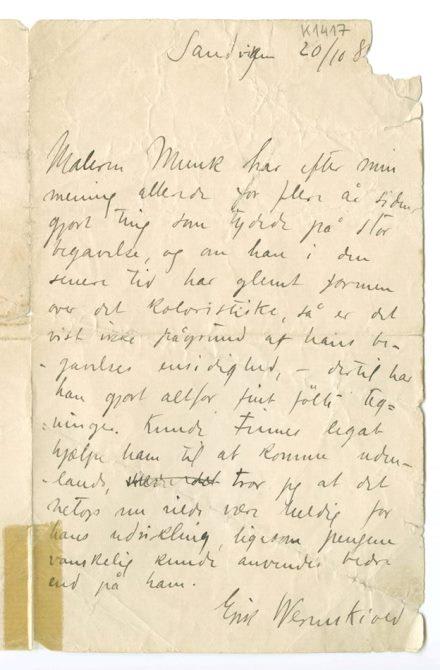 K1417
Sandviken 20/10 8
Maleren Munk har efter min
mening allerede for flere år siden
gjort ting som tydede på stor
begavelse, og om han i den
senere tid har glemt formen
over det koloristiske, så er det
vist ikke pågrund af hans be-
gavelses ensidighed, – dertil har
han gjort altfor fint fölte teg-
ninger. Kunde Finnes legat
hjælpe ham til at komme uden-
lands, tror jeg at det
netop nu vilde være heldig for
hans udvikling, ligesom pengene
vanskelig kunde anvendes bedre
end på ham.
Erik Werenskiold